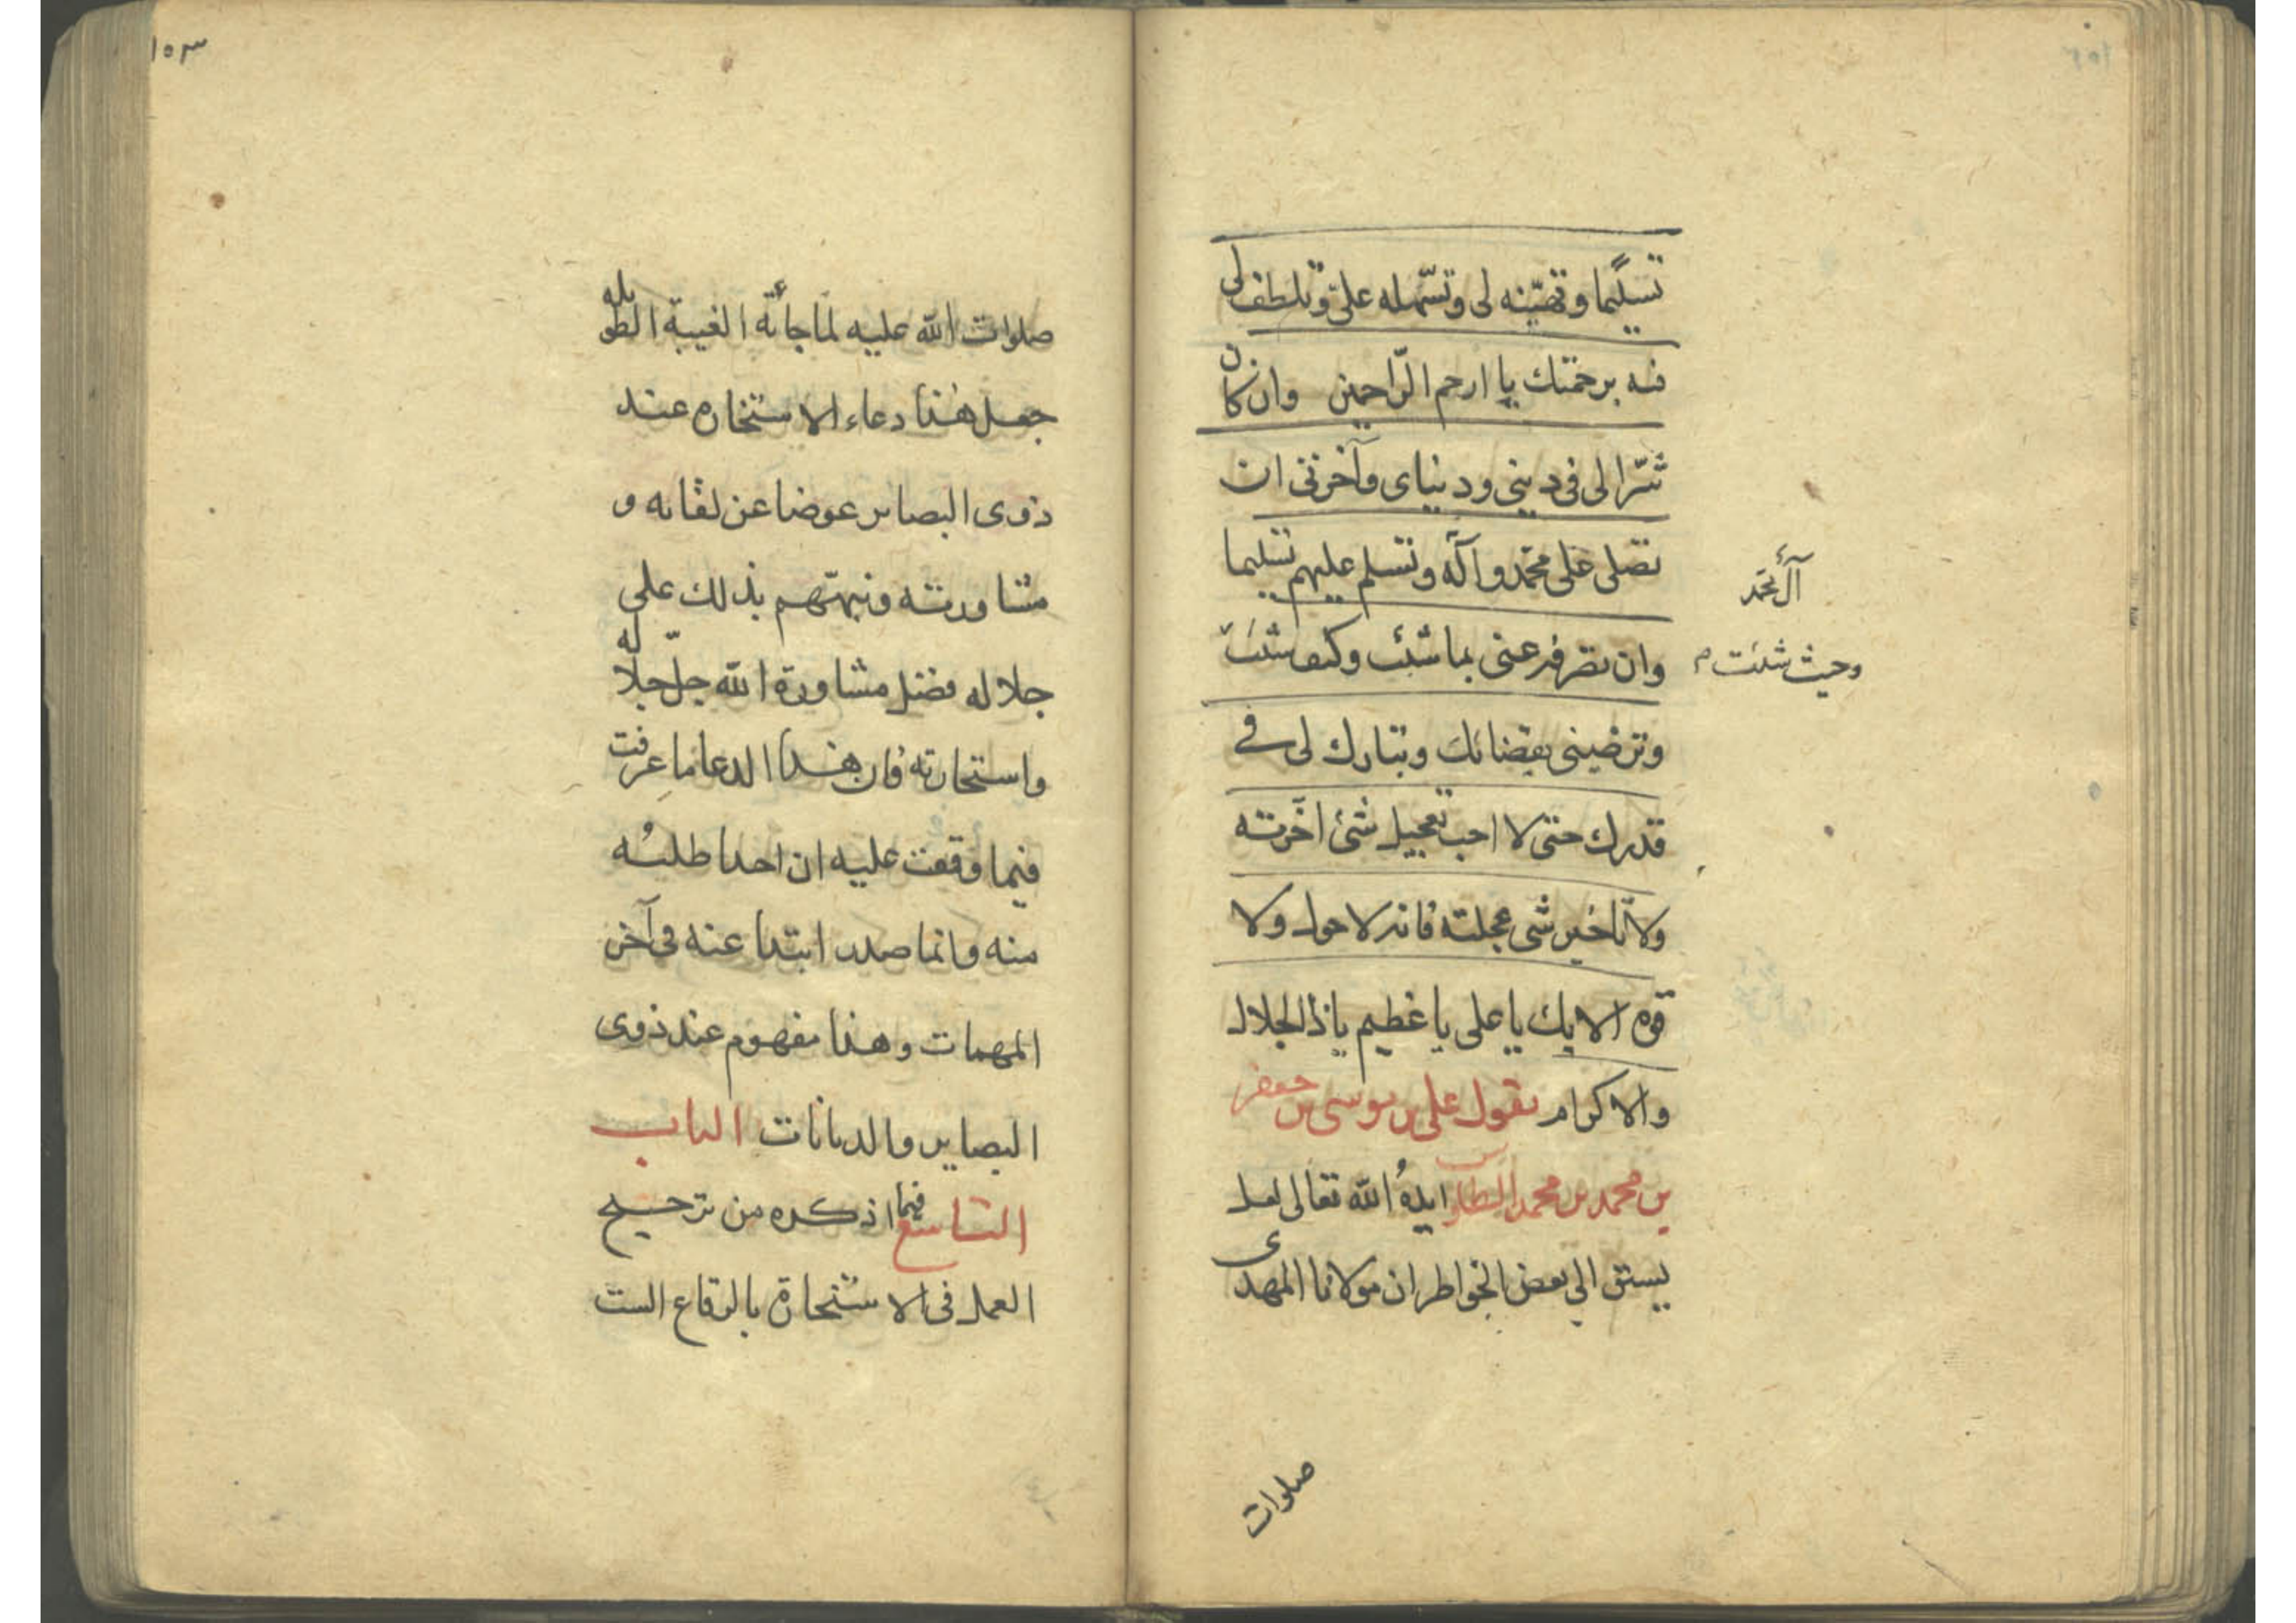 تسليما وتهيّنه لى وتسّهله علىّ وتلطف لى
فيه برحمتك يا ارحم الرّاحمين وان كان
شرّا لى فى دينى ودنياى وآخرتى ان
تصلى على محمّد وآله وتسلم عليهم تسليما
آل محمّد
وان تصرفه عنى بما شئت وكيف شئت
وحيث شئت م
وترضينى بقضائك وتبارك لى فى
قدرك حتى لا احب تعجيل شئ اخّرته
ولا تاخير شى عجلته فانه لا حول ولا
قوه الا بك يا على يا عظيم يا ذا الجلال
والاكرام يقول على بن موسى بن جعفر
بن محمد بن محمد الطاوس ايدهُ الله تعالى لعل
يسبق الى بعض الخواطر ان مولانا المهدى
صلوات
١٥٣
صلوات الله عليه لما جائة الغيبة الطويله
جعل هذا دعاء الاستخاره عند
ذوى البصاير عوضا عن لقائه و
مشاورته ونبهّهم بذلك على
جلاله فضل مشاورة الله جلّ جلاله
واستخارته فان هذا الدعا ما عرفت
فيما وقفت عليه ان احدا طلبُه
منه وانما صدر ابتدا عنه فى آخر
المهمات وهذا مفهوم عند ذوى
البصاير والديانات الباب
التاسع فيما اذكره من ترجيح
العمل فى الاستخارة بالرقاع الست